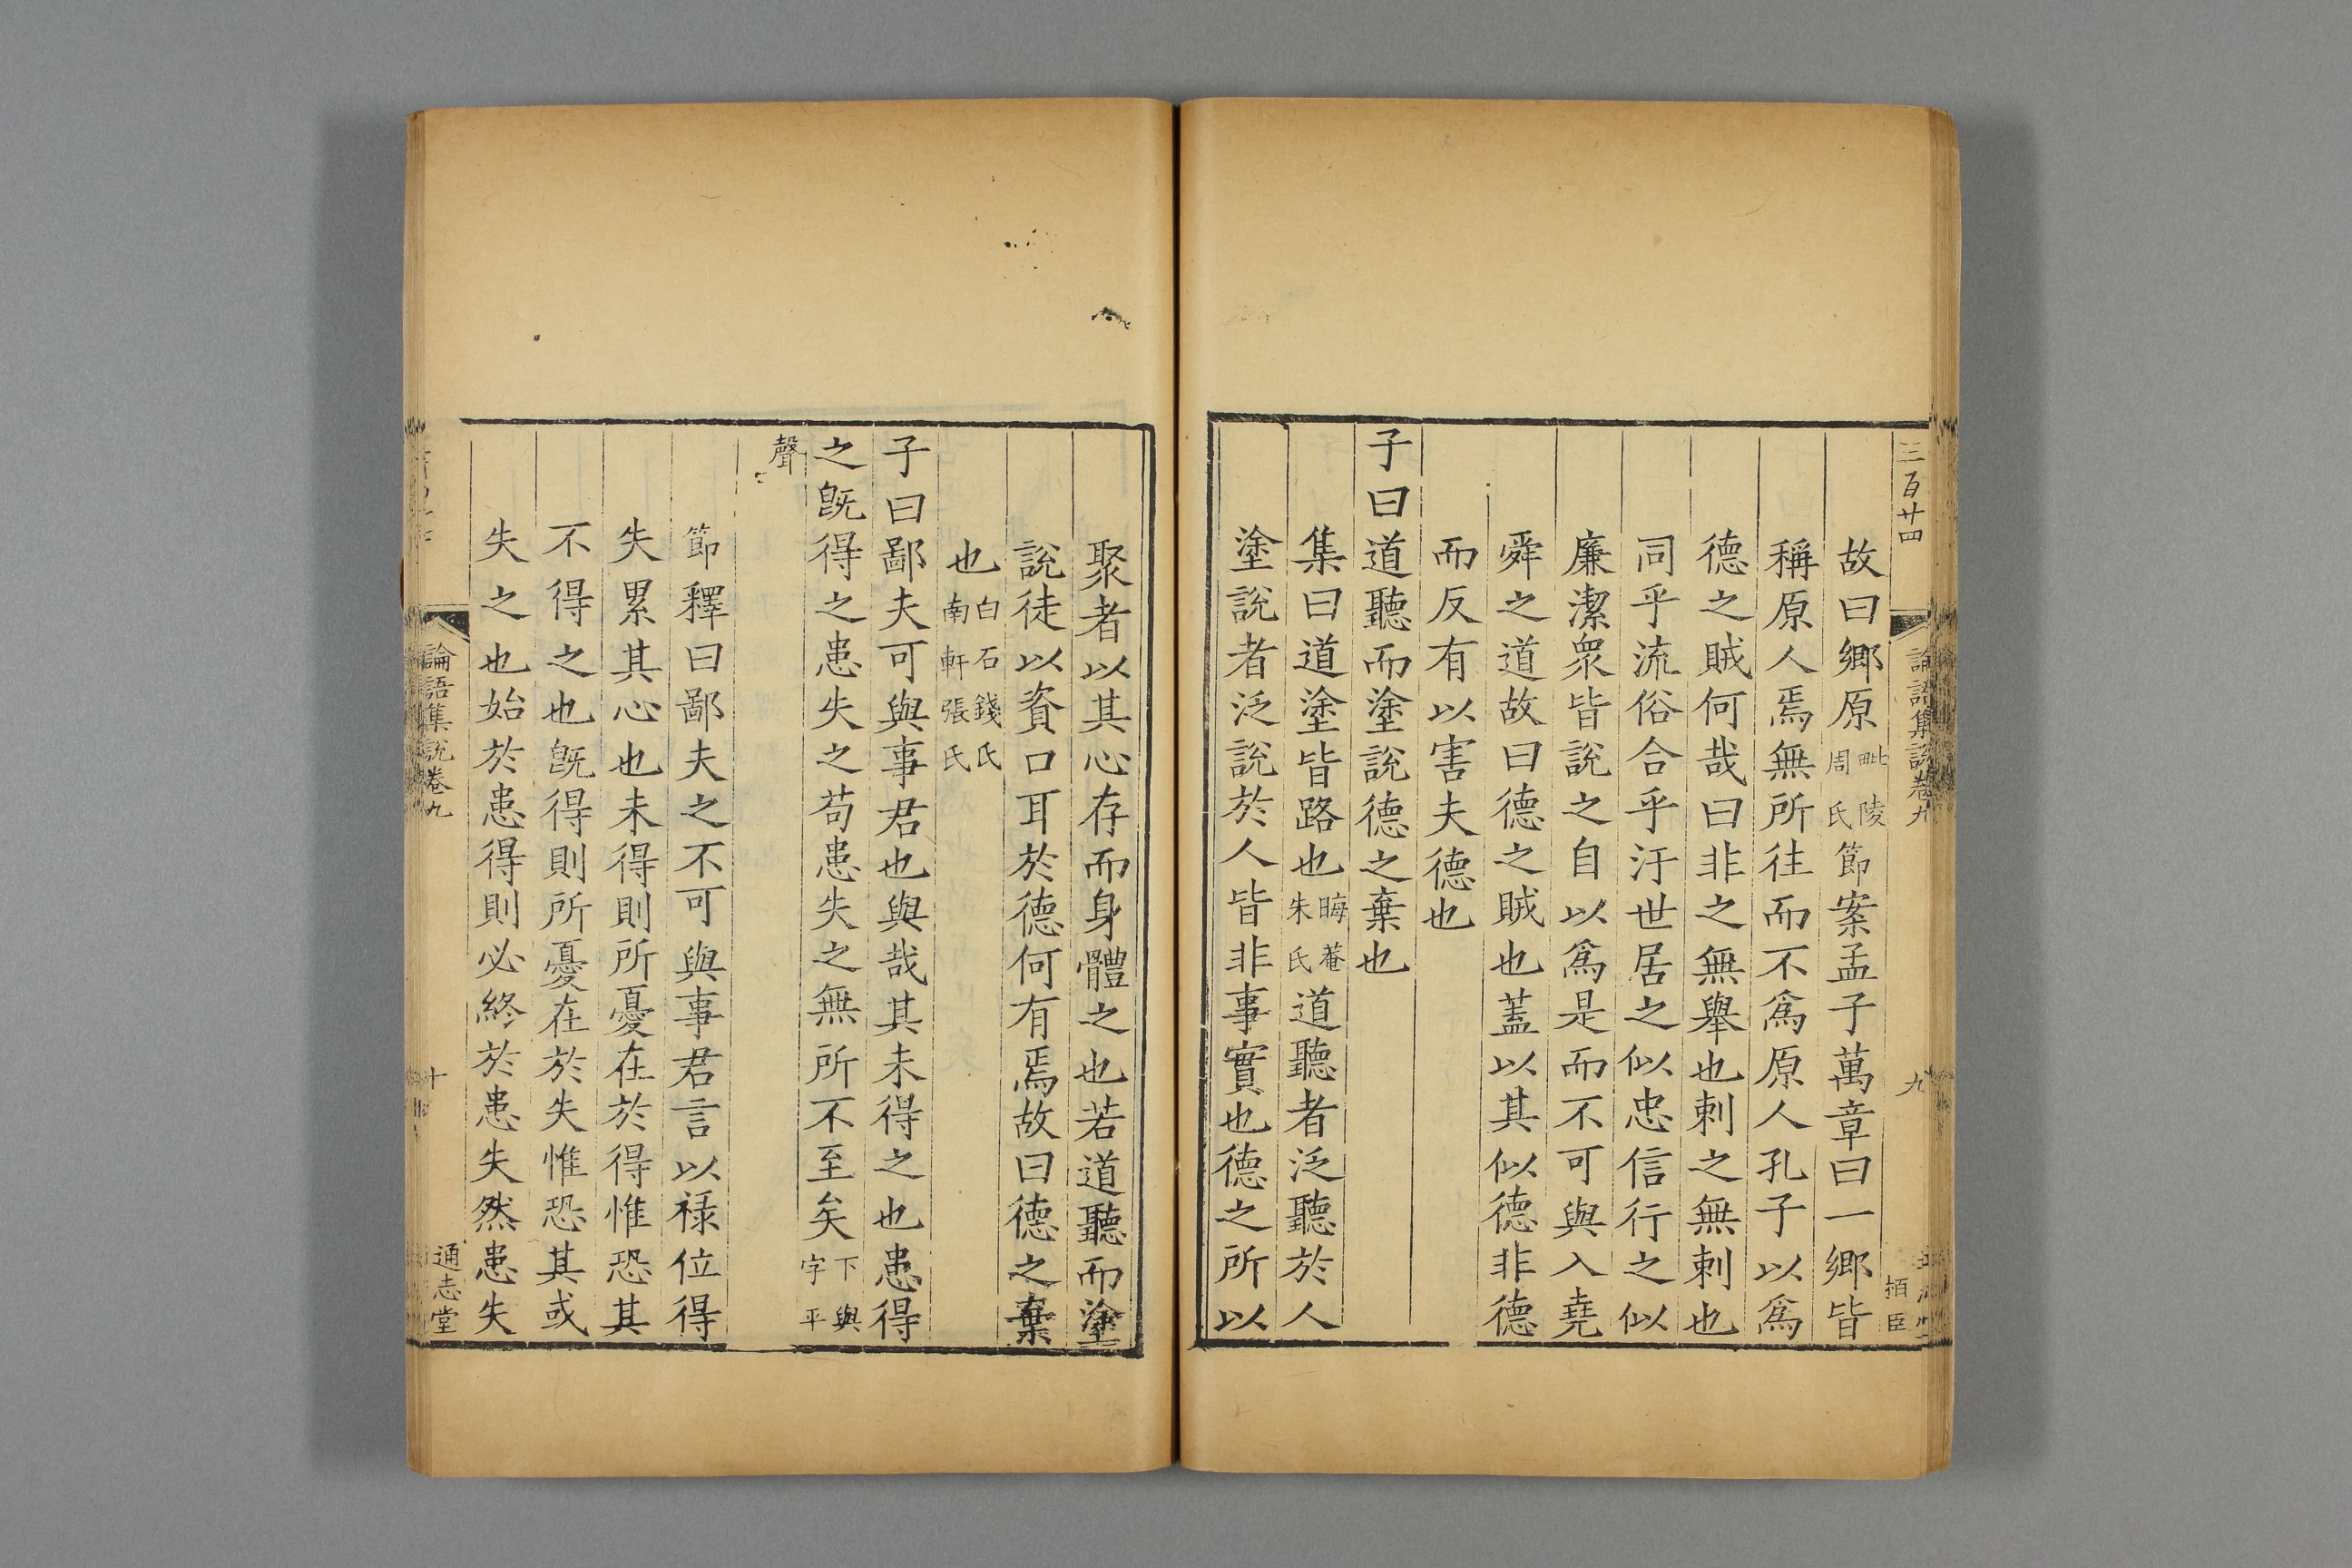 三百廿四
論語集說卷九
九
栢臣
故曰鄉原毗陵周氏節案孟子萬章曰一鄉皆
稱原人焉無所往而不爲原人孔子以爲
德之賊何哉曰非之無舉也刺之無刺也
同乎流俗合乎汙世居之似忠信行之似
廉潔衆皆說之自以爲是而不可與入堯
舜之道故曰德之賊也蓋以其似德非德
而反有以害夫德也
子曰道聽而塗說德之棄也
集曰道塗皆路也晦菴朱氏道聽者泛聽於人
塗說者泛說於人皆非事實也德之所以
聚者以其心存而身體之也若道聽而塗
說徒以資口耳於德何有焉故曰德之棄
也白石錢氏南軒張氏
子曰鄙夫可與事君也與哉其未得之也患得
之旣得之患失之苟患失之無所不至矣下與字平
聲
節釋曰鄙夫之不可與事君言以祿位得
失累其心也未得則所憂在於得惟恐其
不得之也旣得則所憂在於失惟恐其或
失之也始於患得則必終於患失然患失
論語集說卷九
十
通志堂